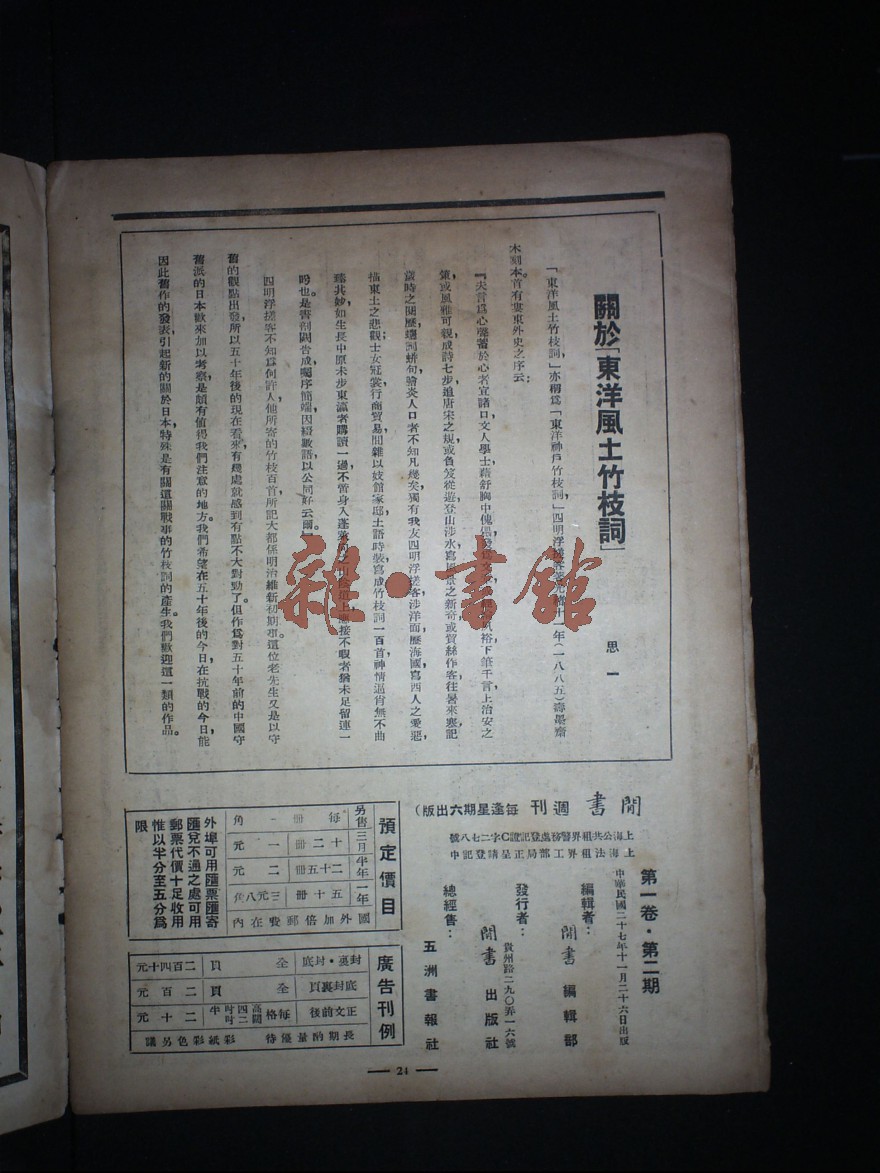 關於「東洋風土竹枝詞」
思一
「東洋風土竹枝詞，」亦稱爲「東洋神戶竹枝詞，」四明浮槎客著光緒十一年（一八八五）壽墨齋
木刻本。首有婁東外史之序云：
『夫言爲心聲蓄於心者宜諸口文人學士蘊舒胸中傀儡發爲文 裕下筆千言上治安之
策或風雅可親成詩七步追唐宋之規或負笈從遊登山涉水寫風景之新奇或貿絲作客往暑來寒記
歲時之閱歷 詞 句膾炙人口者不知凡幾矣獨有我友四明浮槎客涉洋面歷海國寫西人之愛惡，
描東土之悲觀士女冠裳行商貿易間雜以妓館家邸土語時裝寫成竹枝詞一百首神情逼肖無不曲
臻其妙如生長中原未步東瀛者購讀一過不啻身入蓬萊 山陰道上應接不暇者猶未足留連一
吟也是書剞劂告成囑序簡端因綴數語以公同好云爾
四明浮槎客不知爲何許人，他所寄的竹枝百首所記大都係明治維新初期事。這位老先生又是以守
舊的觀點出發，所以五十年後的現在看來，有幾處就感到有點不大對勁了。但作爲對五十年前的中國守
舊派的日本歌來加以考察，是頗有值得我們注意的地方。我們希望在五十年後的今日，在抗戰的今日，能
因此舊作的發表，引起新的關於日本，特殊是有關這關戰事的竹枝詞的產生。我們歡迎這一類的作品。
閒書 週刊（每逢星期六出版）
上海公共租界警務處登記證C字二七八號
上海法租界工部局正呈請登記中
第一卷·第二期
中華民國二十七年十一月二十六日出版
編輯者：
閒書 編輯部
發行者：
貴州路二九〇弄一六號
閒書 出版社
總經售：
五洲書報社
預定價目
另售 每冊 一角
三月 十二冊 一元
半年 二十五冊 二元
一年 五十冊 三元八角
國外加倍郵費在內
外埠可用匯票匯寄
匯兌不通之處可用
郵票代價十足收用
惟以半分至五分爲
限
廣告刊例
封裏·封底 全頁 二百四十元
底封裏頁 全頁 二百元
正文前後 每格 高四吋闊二吋半 二十元
長期酌量優特 彩紙彩色另議
— 24 —
雜·書館